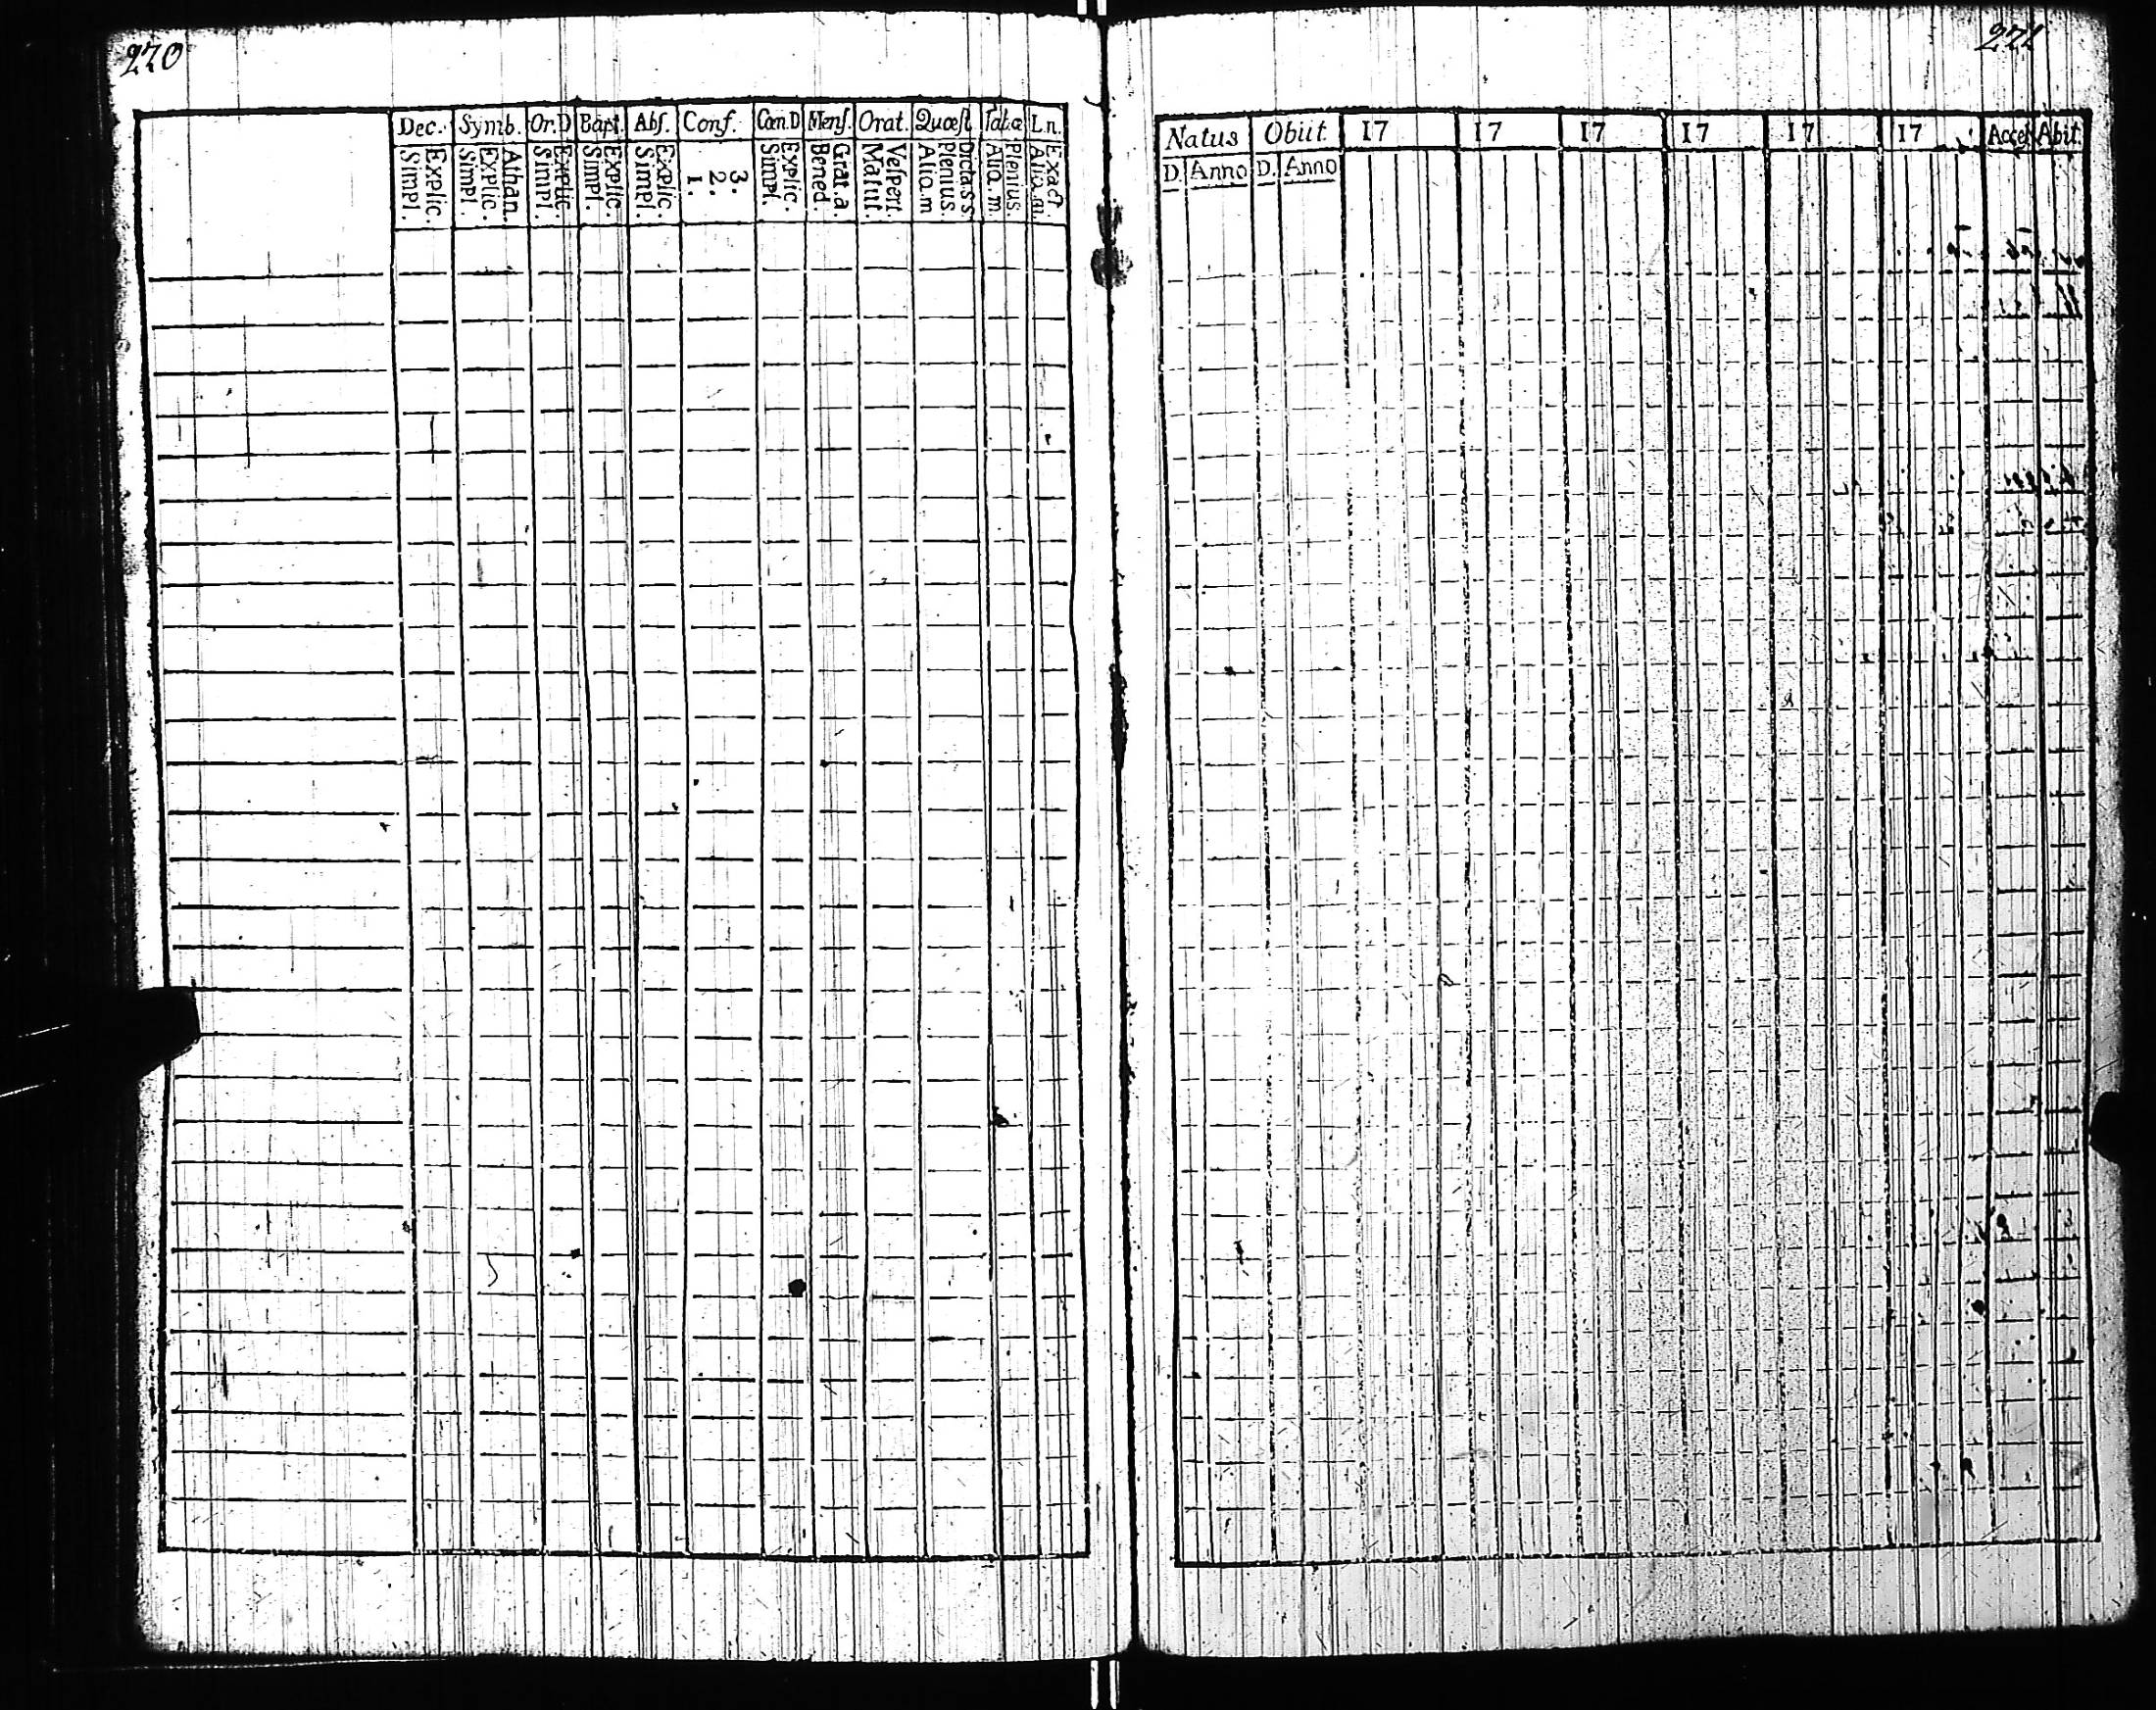 220
221
Dec. Symb. Or.D Bapt. Abſ. Conf. Cœn.D Menſ. Orat. Quæſt Tab.œ L.n.
Simpl. Explic. Simpl. Explic. Athan. Simpl. Explic. Simpl. Explic. Simpl. Explic. 1. 2. 3. Simpl. Explic. Bened. Grat.a. Matut. Veſpert. Alio.m Plenius. Dicta.s.s. Alio.m. Plenius. Alio.m. Exact
Natus Obiit 17 17 17 17 17 17 Acceſ Abit
D. Anno D. Anno